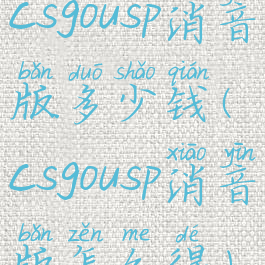 csgousp消音
bǎn duō shǎo qián
版多少钱(
xiāo yīn
csgousp消音
bǎn zěn me dé
版怎么得)